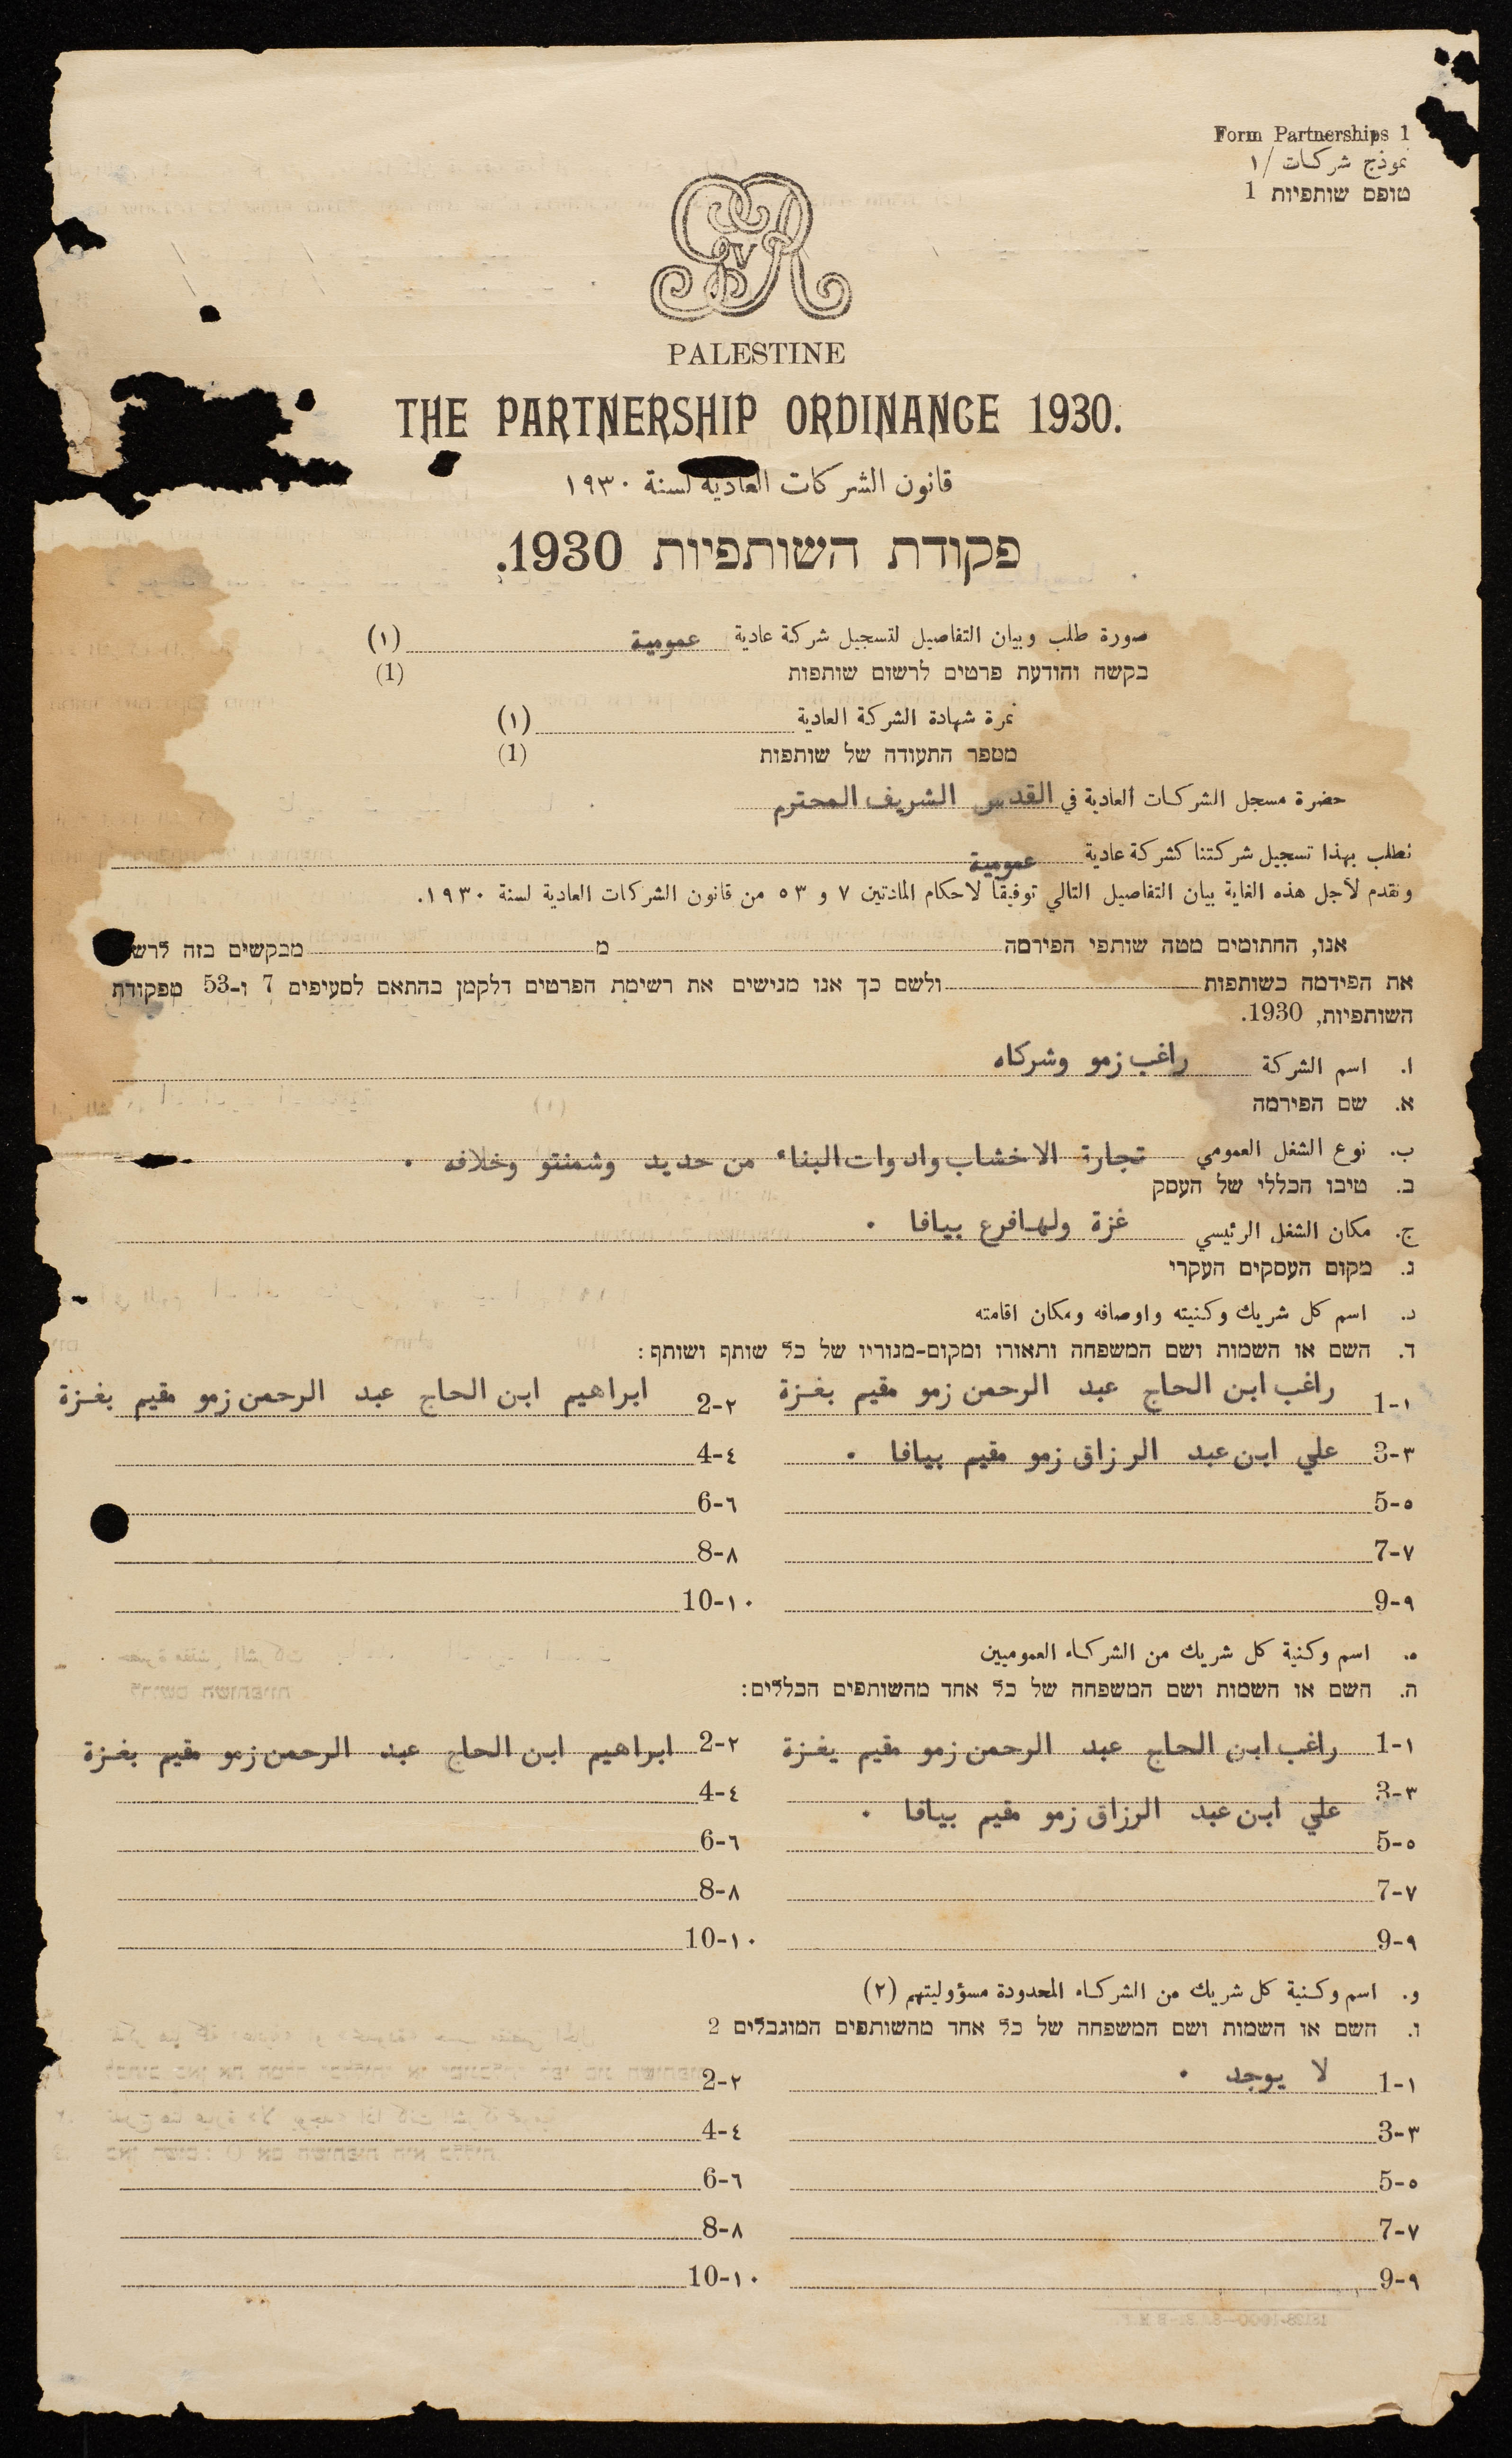 Form Partnerships 1
نموذج شركات /١
טופס שותפיות 1
GVR
PALESTINE
THE PARTNERSHIP ORDINANCE 1930.
قانون الشركات العادية لسنة ١٩٣٠
פקודת השותפיות 1930.
صورة طلب وبيان التفاصيل لتسجيل شركة عادية عمومية (١)
בקשה והודעת פרטים לרשום שותפות (1)
نمرة شهادة الشركة العادية (١)
מספר התעודה של שותפות (1)
حضرة مسجل الشركات العادية في القدس الشريف المحترم
نطلب بهذا تسجيل شركتنا كشركة عادية عمومية
ونقدم لأجل هذه الغاية بيان التفاصيل التالي توفيقاً لاحكام المادتين ٧ و ٥٣ من قانون الشركات العادية لسنة ١٩٣٠.
אנו, החתומים מטה שותפי הפירמה מ מבקשים בזה לרש
את הפירמה כשותפות ולשם כך אנו מגישים את רשימת הפרטים דלקמן בהתאם לסעיפים 7 ו-53 מפקודת
השותפיות, 1930.
ا. اسم الشركة راغب زمو وشركاه
א. שם הפירמה
ب. نوع الشغل العمومي تجارة الاخشاب وادوات البناء من حديد وشمنتو وخلافه .
ב. טיבו הכללי של העסק
ج. مكان الشغل الرئيسي غزة ولها فرع بيافا .
ג. מקום העסקים העקרי
د. اسم كل شريك وكنيته واوصافه ومكان اقامته
ד. השם או השמות ושם המשפחה ותאורו ומקום-מגוריו של כל שותף ושותף:
1-١ راغب ابن الحاج عبد الرحمن زمو مقيم بغزة 2-٢ ابراهيم ابن الحاج عبد الرحمن زمو مقيم بغزة
3-٣ علي ابن عبد الرزاق زمو مقيم بيافا . 4-٤
5-٥ 6-٦
7-٧ 8-٨
9-٩ 10-١٠
ه. اسم وكنية كل شريك من الشركاء العموميين
ה. השם או השמות ושם המשפחה של כל אחד מהשותפים הכללים:
1-١ راغب ابن الحاج عبد الرحمن زمو مقيم بغزة 2-٢ ابراهيم ابن الحاج عبد الرحمن زمو مقيم بغزة
3-٣ علي ابن عبد الرزاق زمو مقيم بيافا . 4-٤
5-٥ 6-٦
7-٧ 8-٨
9-٩ 10-١٠
و. اسم وكنية كل شريك من الشركاء المحدودة مسؤوليتهم (٢)
ו. השם או השמות ושם המשפחה של כל אחד מהשותפים המוגבלים 2
1-١ لا يوجد . 2-٢
3-٣ 4-٤
5-٥ 6-٦
7-٧ 8-٨
9-٩ 10-١٠